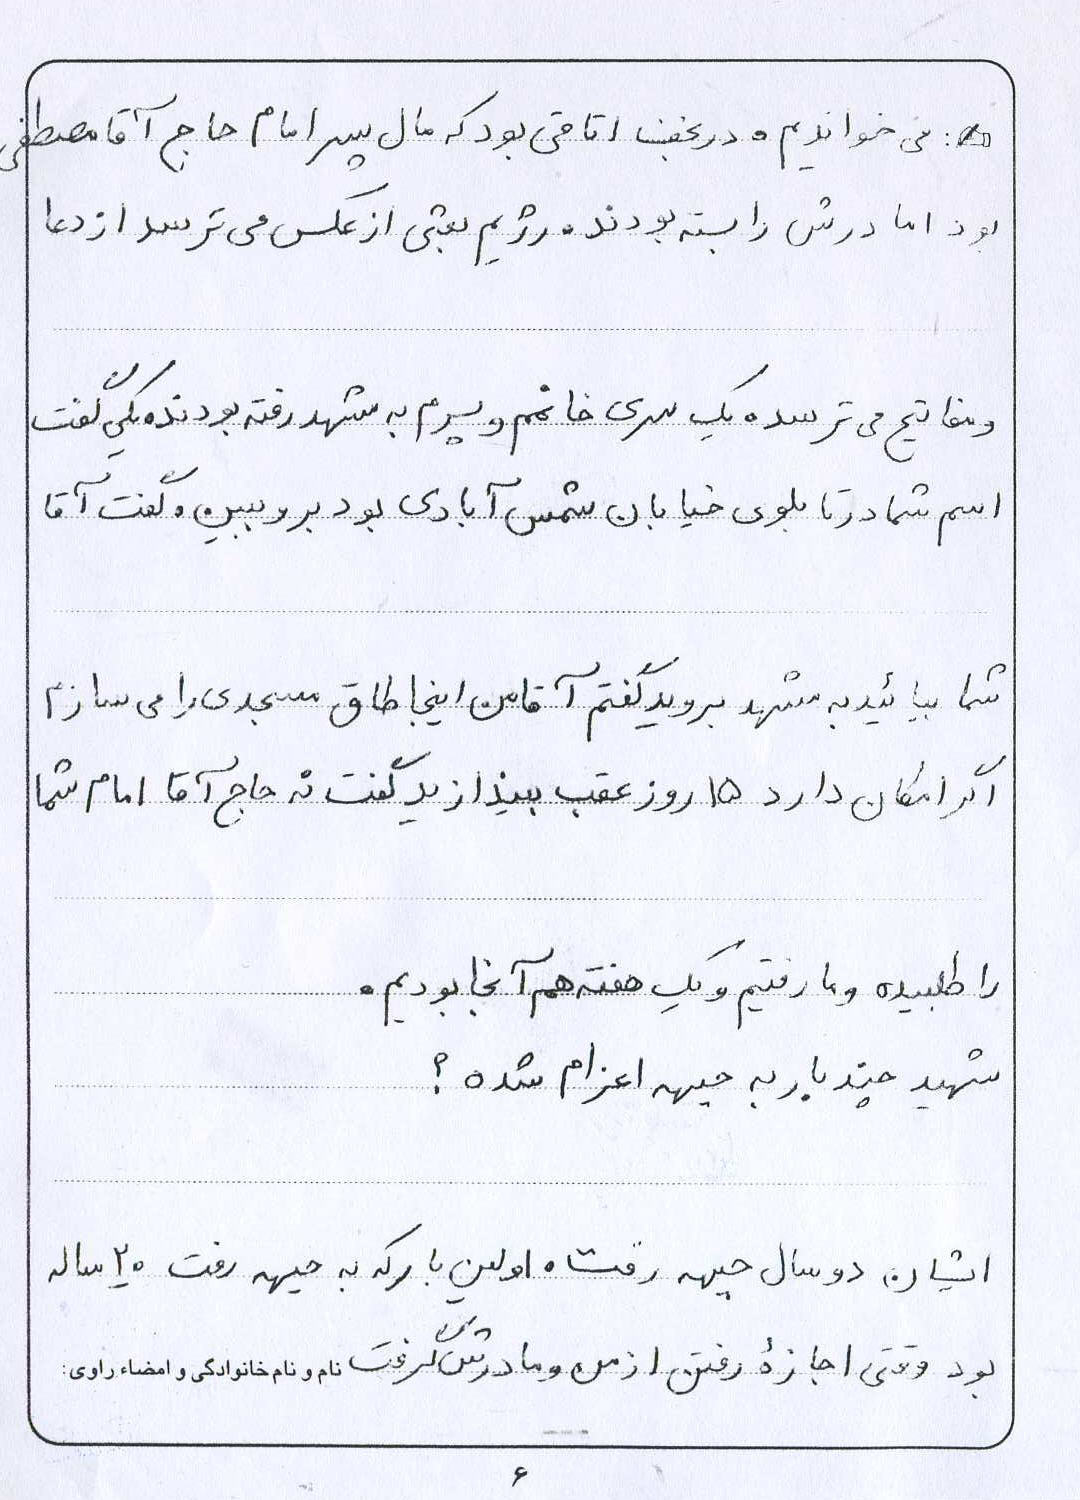 می خواندیم. در نجف اتاقی بود که مال پسر امام حاج آقا مصطفی
بود اما درش را بسته بودند. رژیم بعثی از عکس می ترسد از دعا
و مفاتیح می ترسد. یک سری خانمم و پسرم به مشهد رفته بودند. یکی گفت
اسم شما در تابلوی خیابان شمس آبادی بود برو ببین. گفت آقا
شما بیائید به مشهد بروید گفتم آقا من اینجا طاق مسجدی را می سازم
اگر امکان دارد ۱۵ روز عقب بیندازید گفت نه حاج آقا امام شما
را طلبیده و ما رفتیم و یک هفته هم آنجا بودیم.
شهید چند بار به جبهه اعزام شده ؟
ایشان دو سال جبهه رفت. اولین بار که به جبهه رفت ۲۰ ساله
بود وقتی اجازهٔ رفتن از من و مادرش گرفت نام و نام خانوادگی و امضاء راوی:
۶